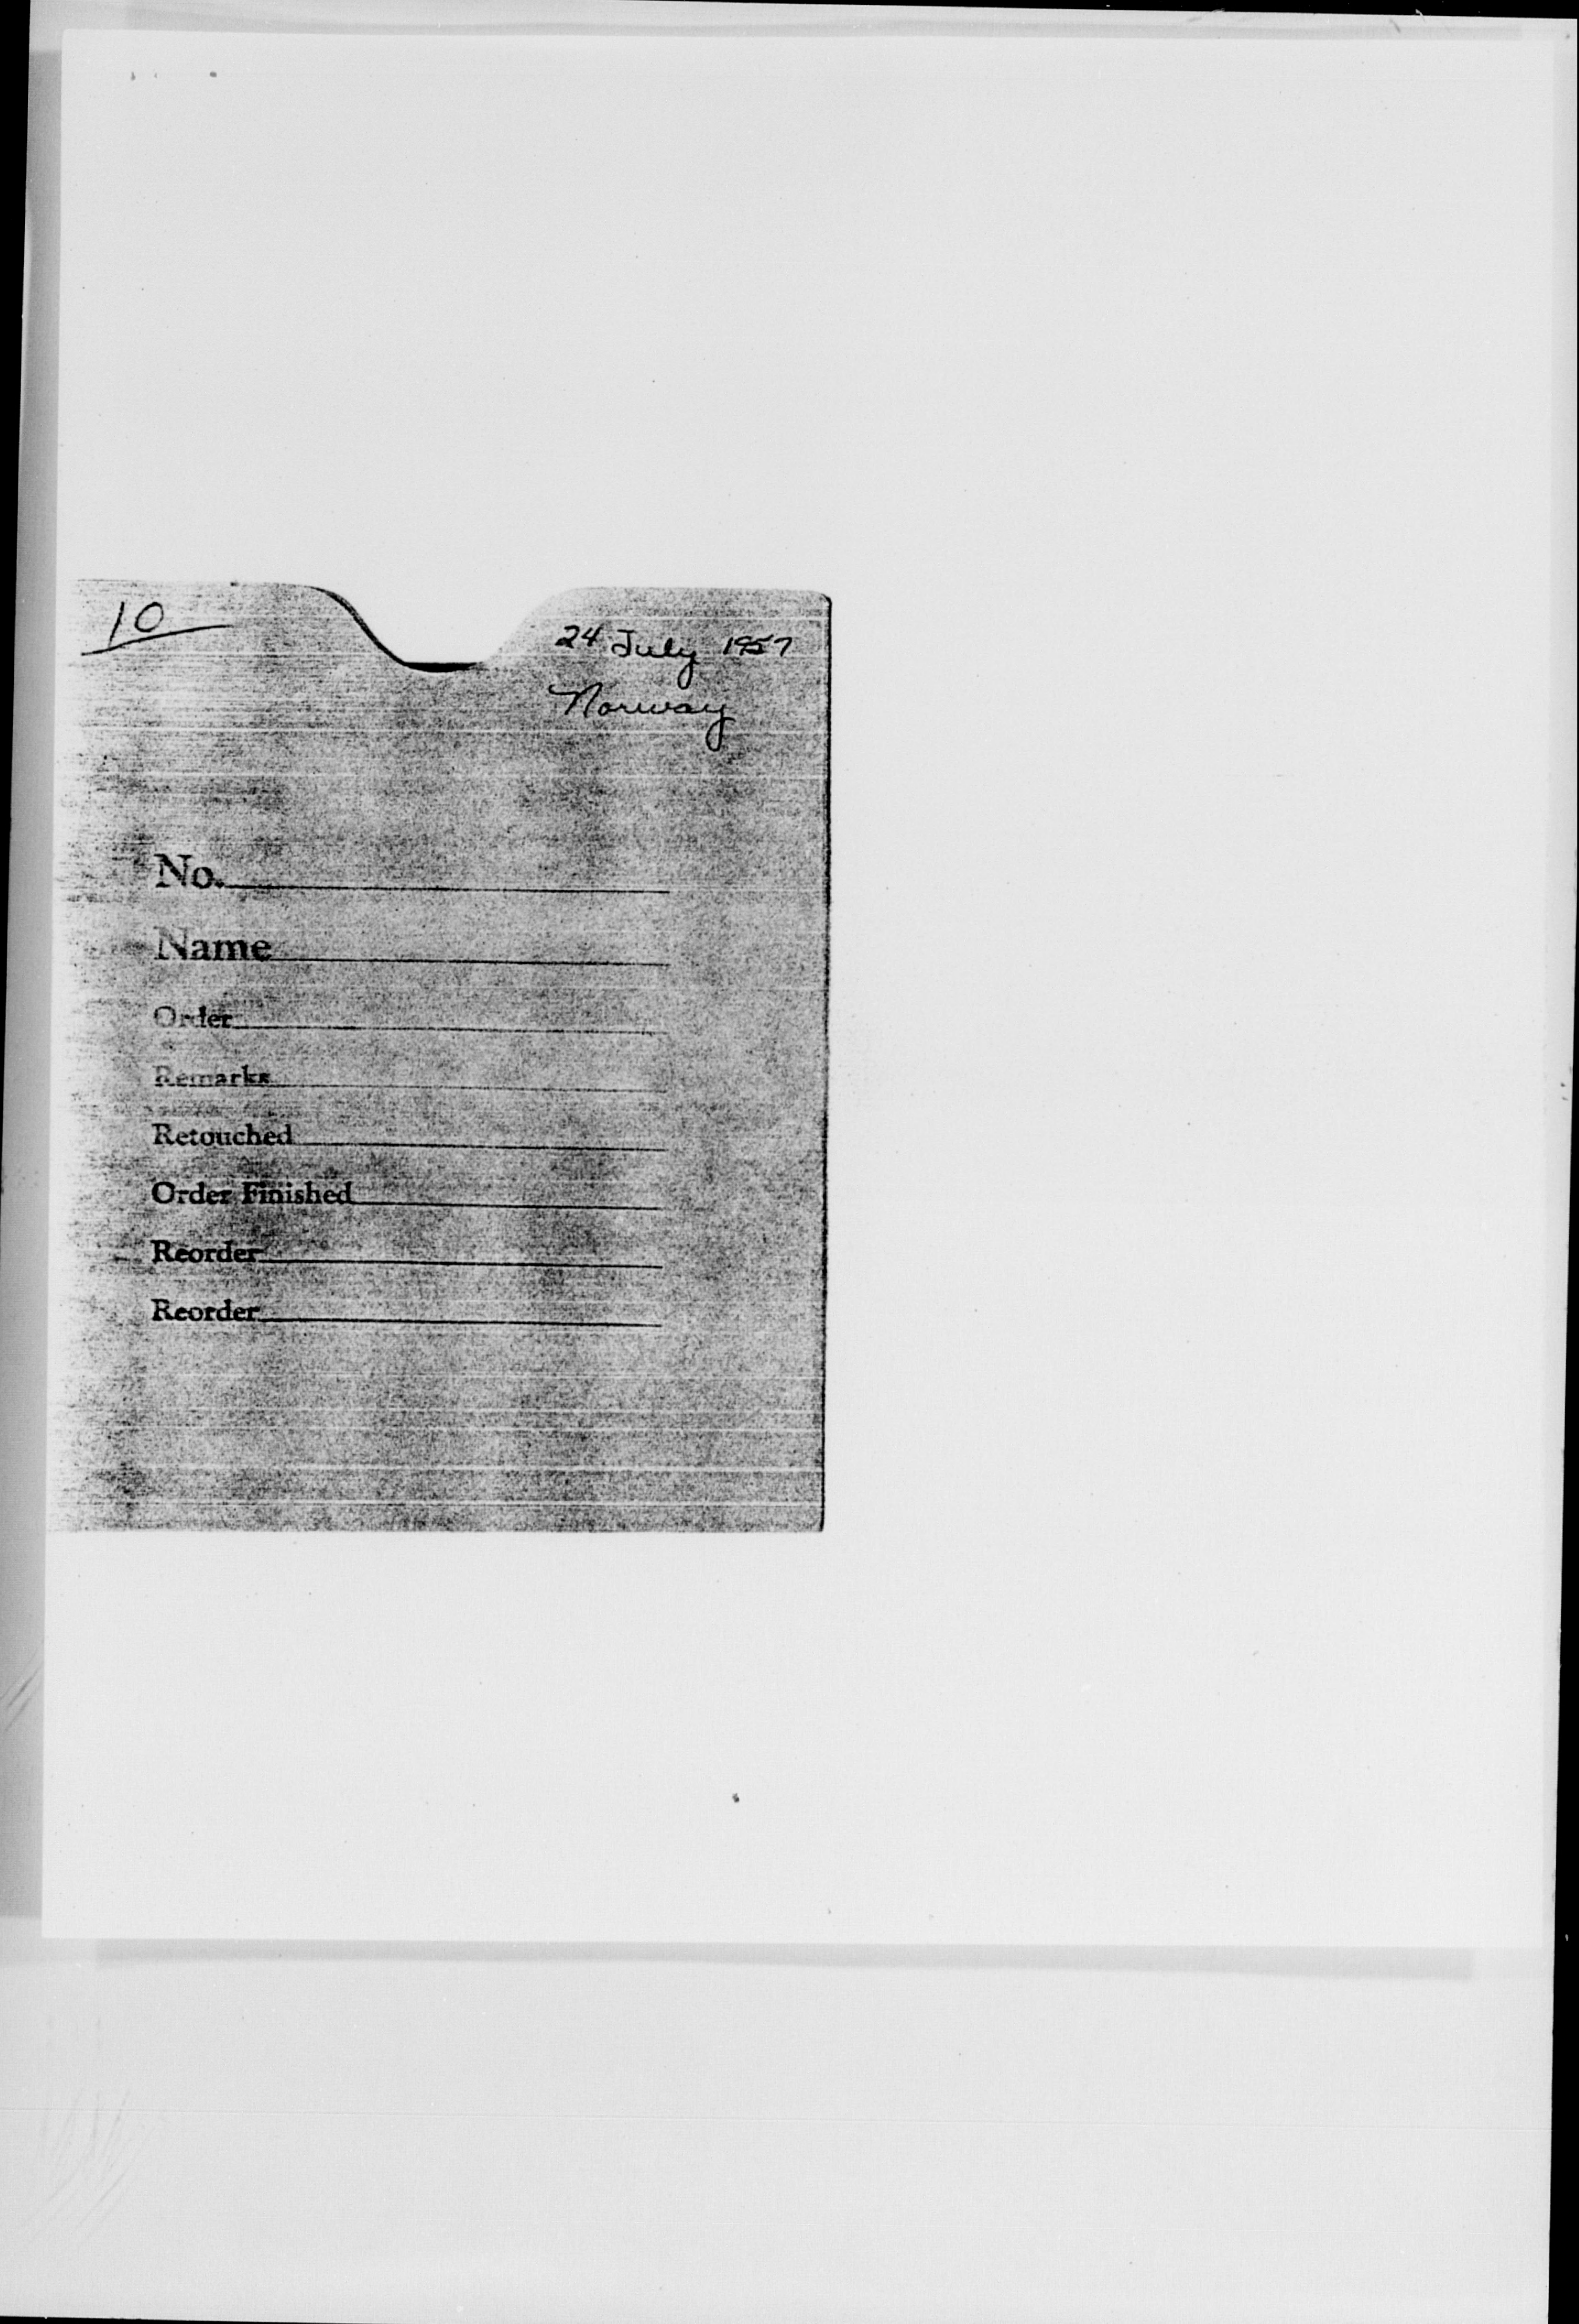 10
24 July 1957
Norway
No.
Name
Order
Remarks
Retouched
Order Finished
Reorder
Reorder